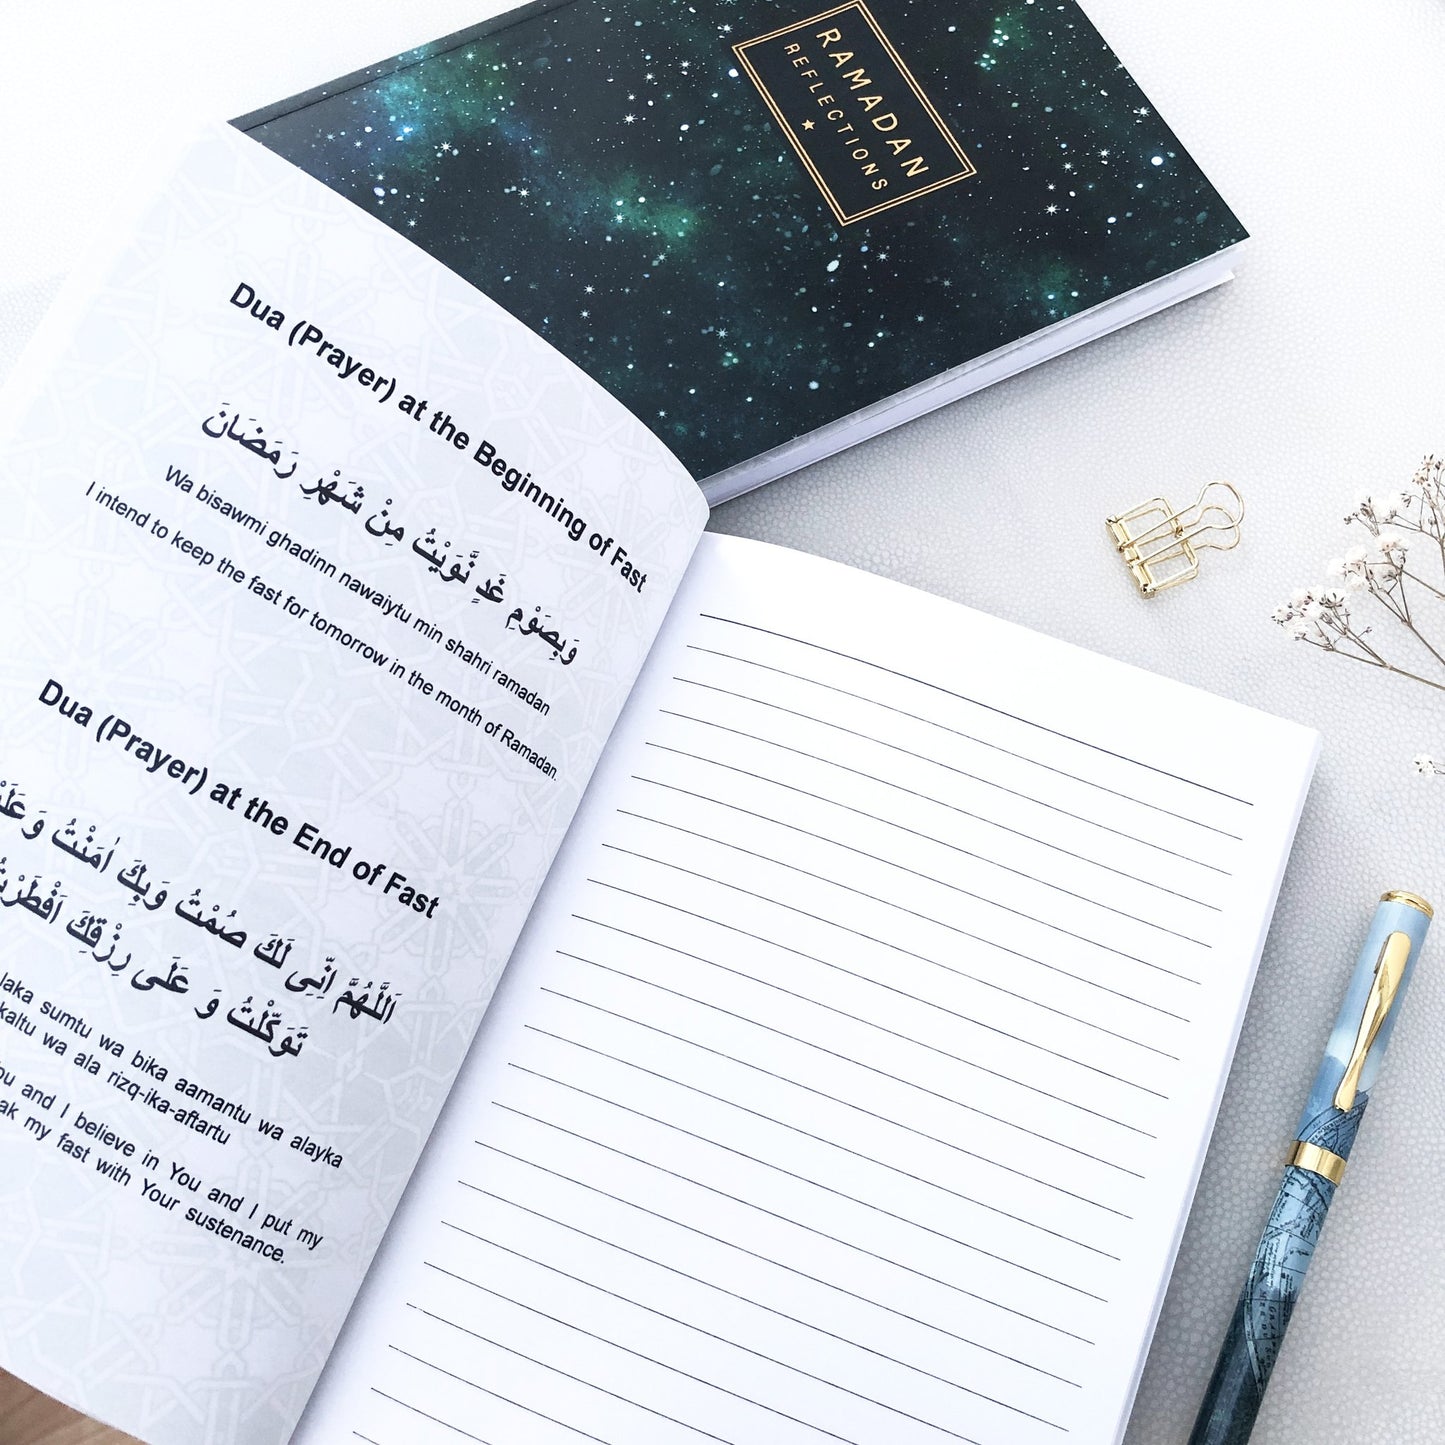 RAMADAN
REFLECTIONS
Dua (Prayer) at the Beginning of Fast
وَبِصَوْمِ غَدٍ نَّوَيْتُ مِنْ شَهْرِ رَمَضَانَ
Wa bisawmi ghadinn nawaiytu min shahri ramadan
I intend to keep the fast for tomorrow in the month of Ramadan.
Dua (Prayer) at the End of Fast
اَللّٰهُمَّ اِنِّى لَكَ صُمْتُ وَبِكَ اٰمَنْتُ
تَوَكَّلْتُ وَ عَلَى رِزْقِكَ اَفْطَرْتُ
sumtu wa bika aamantu wa alayka
wa ala rizq-ika-aftartu
and I believe in You and I put my
my fast with Your sustenance.